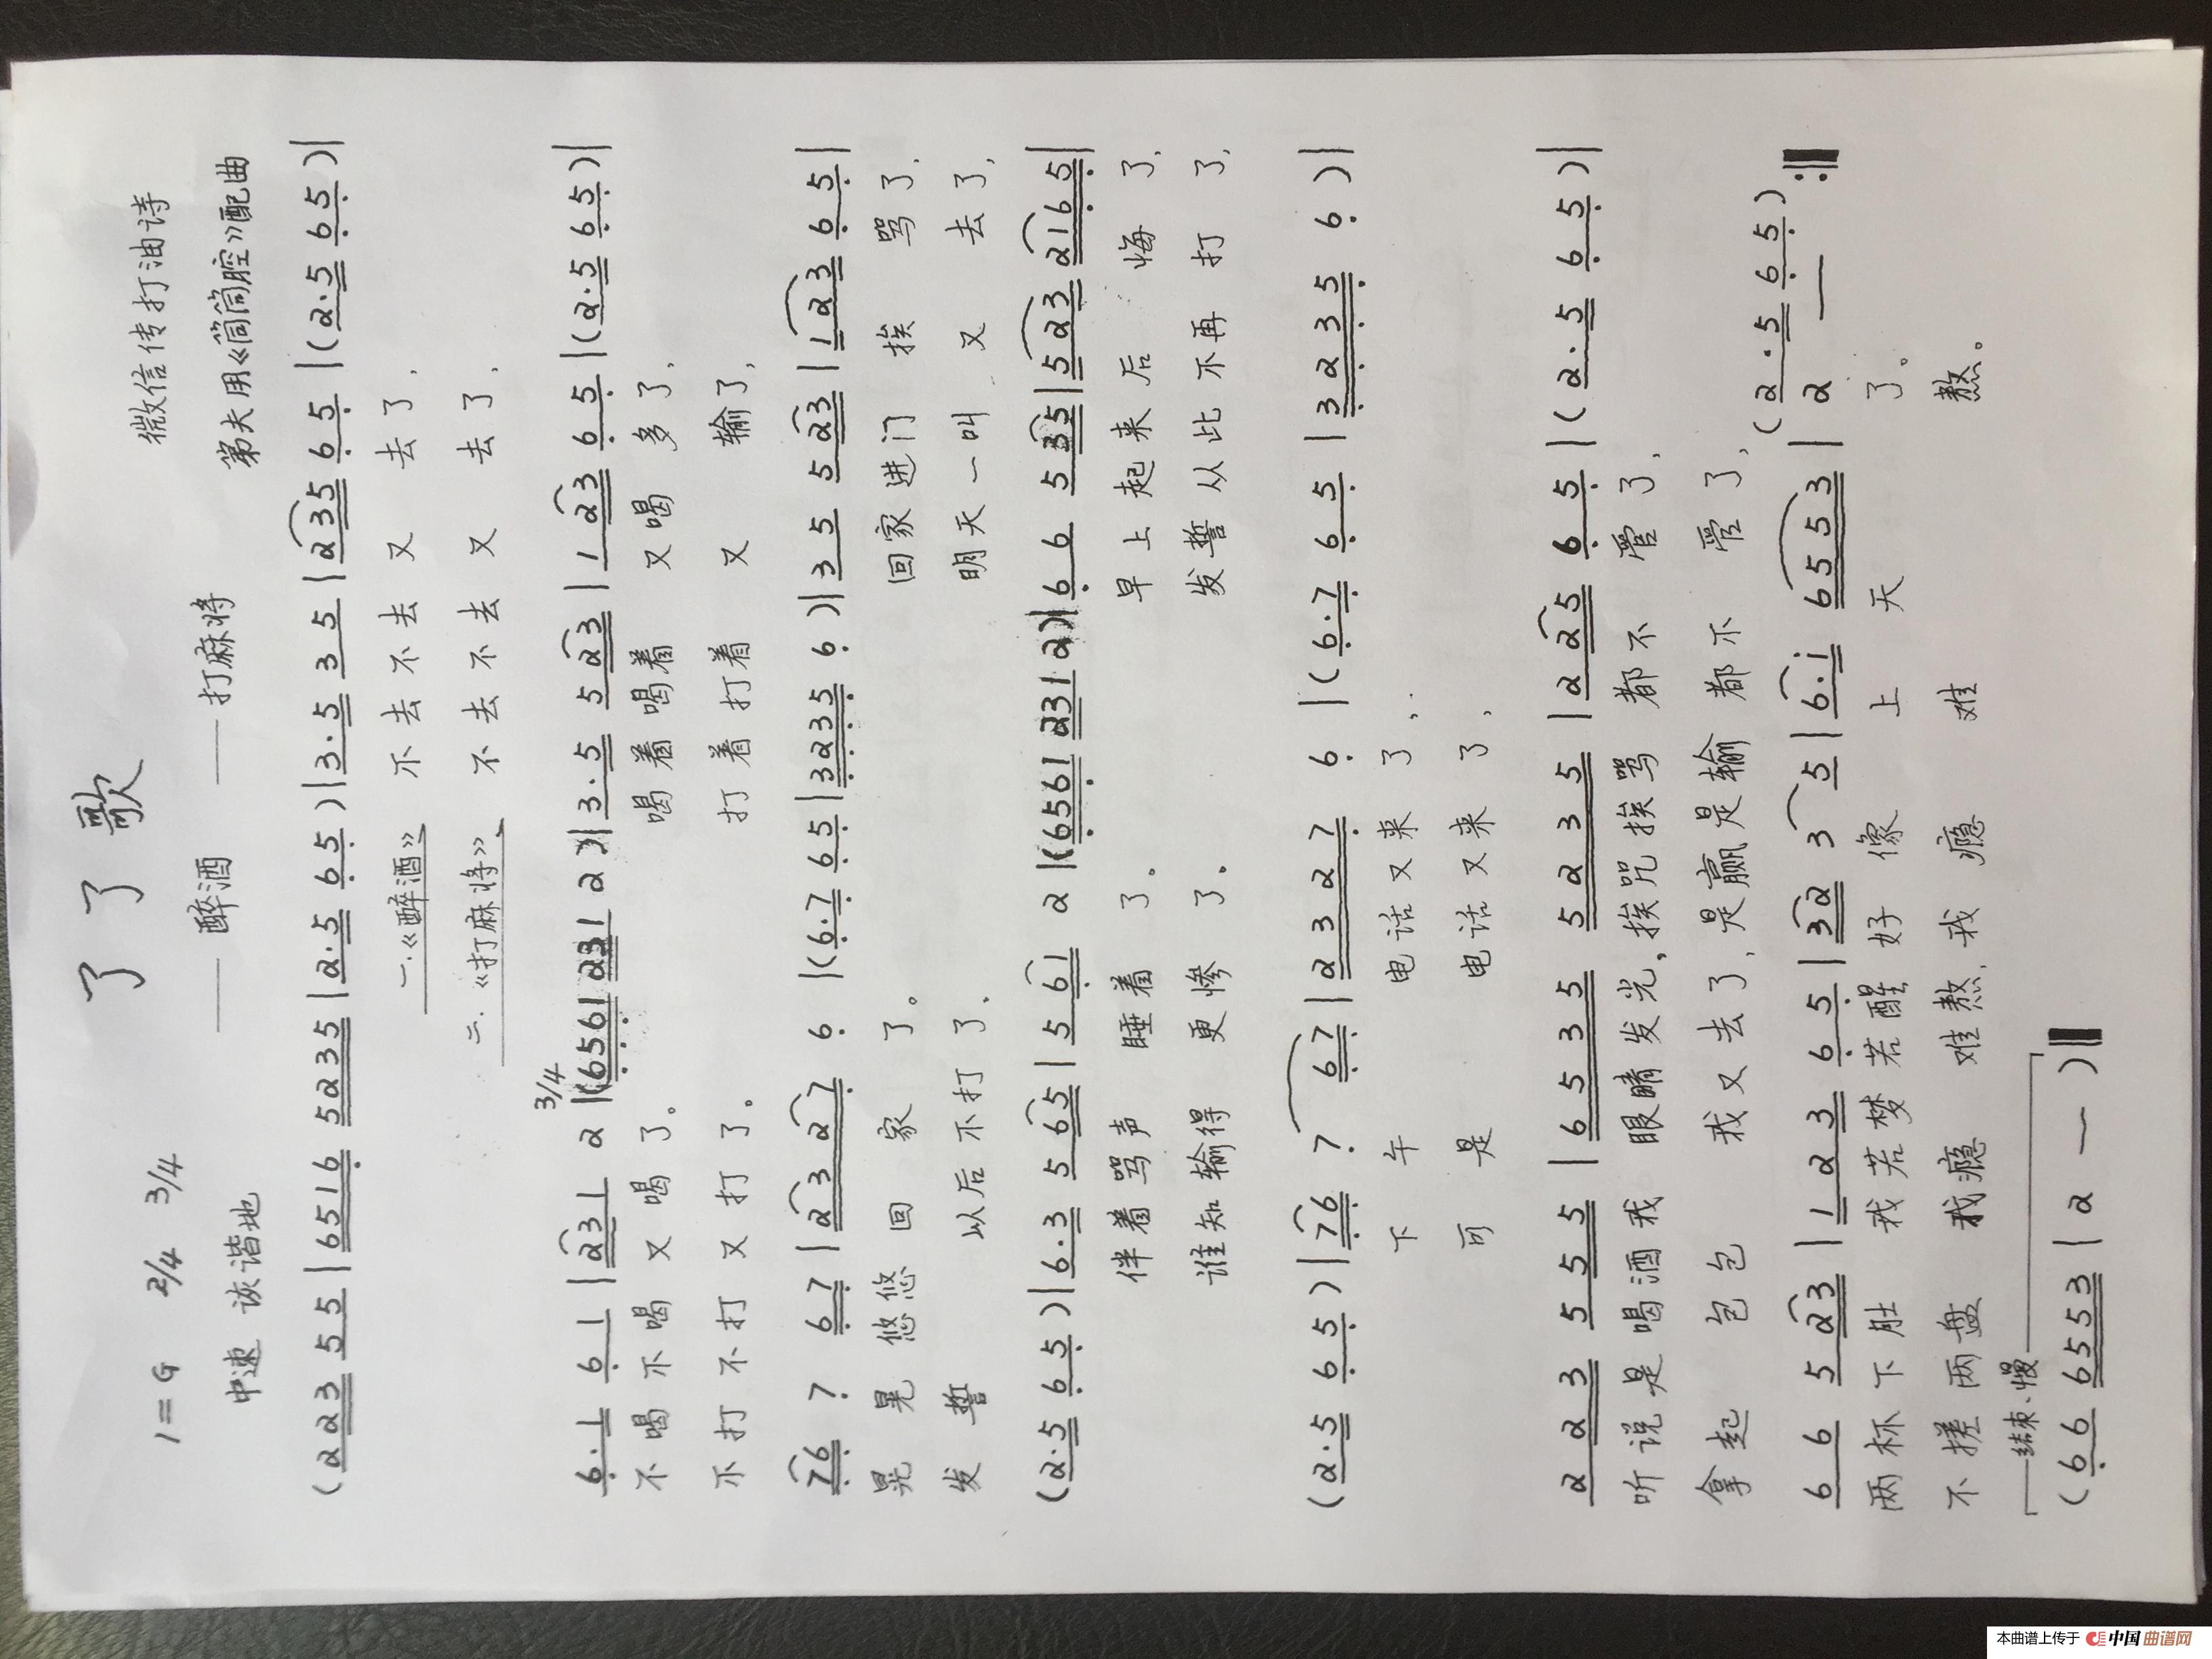 了了歌
1=G 2/4 3/4
微信传打油诗
——醉酒 ——打麻将
中速 诙谐地
第夫用《筒筒腔》配曲
(2 2 3 5 5 | 6 5 1 6 5 2 3 5 | 2·5 6 5 ) | 3·5 3 5 | 2 3 5 6 5 | (2·5 6 5 ) |
一.《醉酒》 不去不去又去了,
二.《打麻将》 不去不去又去了,
3/4
6·1 6 1 | 2 3 1 2 | (6 5 6 1 2 3 1 2 ) | 3·5 5 2 3 | 1 2 3 6 5 | (2·5 6 5 ) |
不喝不喝又喝了。 喝着喝着又喝多了,
不打不打又打了。 打着打着又输了,
7 6 7 6 7 | 2 3 2 7 6 | (6·7 6 5 | 3 2 3 5 6 ) | 3 5 5 2 3 | 1 2 3 6 5 |
晃晃悠悠回家了。 回家进门挨骂了,
发誓以后不打了, 明天一叫又去了,
(2·5 6 5 ) | 6·3 5 6 5 | 5 6 1 2 | (6 5 6 1 2 3 1 2 ) | 6 6 5 3 5 | 5 2 3 2 1 6 5 |
伴着骂声睡着了。 早上起来后悔了,
谁知输得更惨了。 发誓从此不再打了,
(2·5 6 5 ) | 7 6 7 6 7 | 2 3 2 7 6 | (6·7 6 5 | 3 2 3 5 6 ) |
下午电话又来了,
可是电话又来了,
2 2 3 5 5 5 | 6 5 3 5 5 2 3 5 | 2 2 5 6 5 | (2·5 6 5 ) |
听说是喝酒我眼睛发光,挨咒挨骂都不管了,
拿起包包我又去了,是赢是输都不管了,
(2·5 6 5 )
6 6 5 2 3 | 1 2 3 6 5 | 3 2 3 5 | 6·i 6 5 5 3 | 2 — :‖
两杯下肚我若梦若醒好像上天了。
不搓两盘我瘾难熬,我瘾难熬。
结束、慢
(6 6 6 5 5 3 | 2 — )‖
本曲谱上传于 中国曲谱网